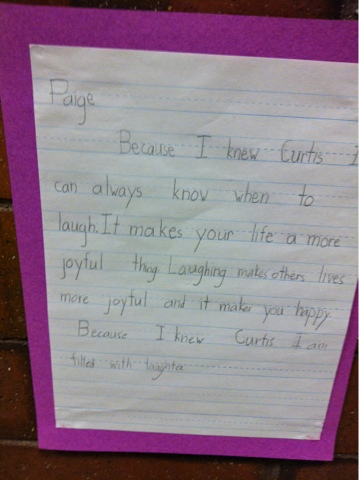 Paige
Because I knew Curtis I
can always know when to
laugh. It makes your life a more
joyful thing Laughing makes others lives
more joyful and it makes you happy
Because I knew Curtis I am
filled with laughter